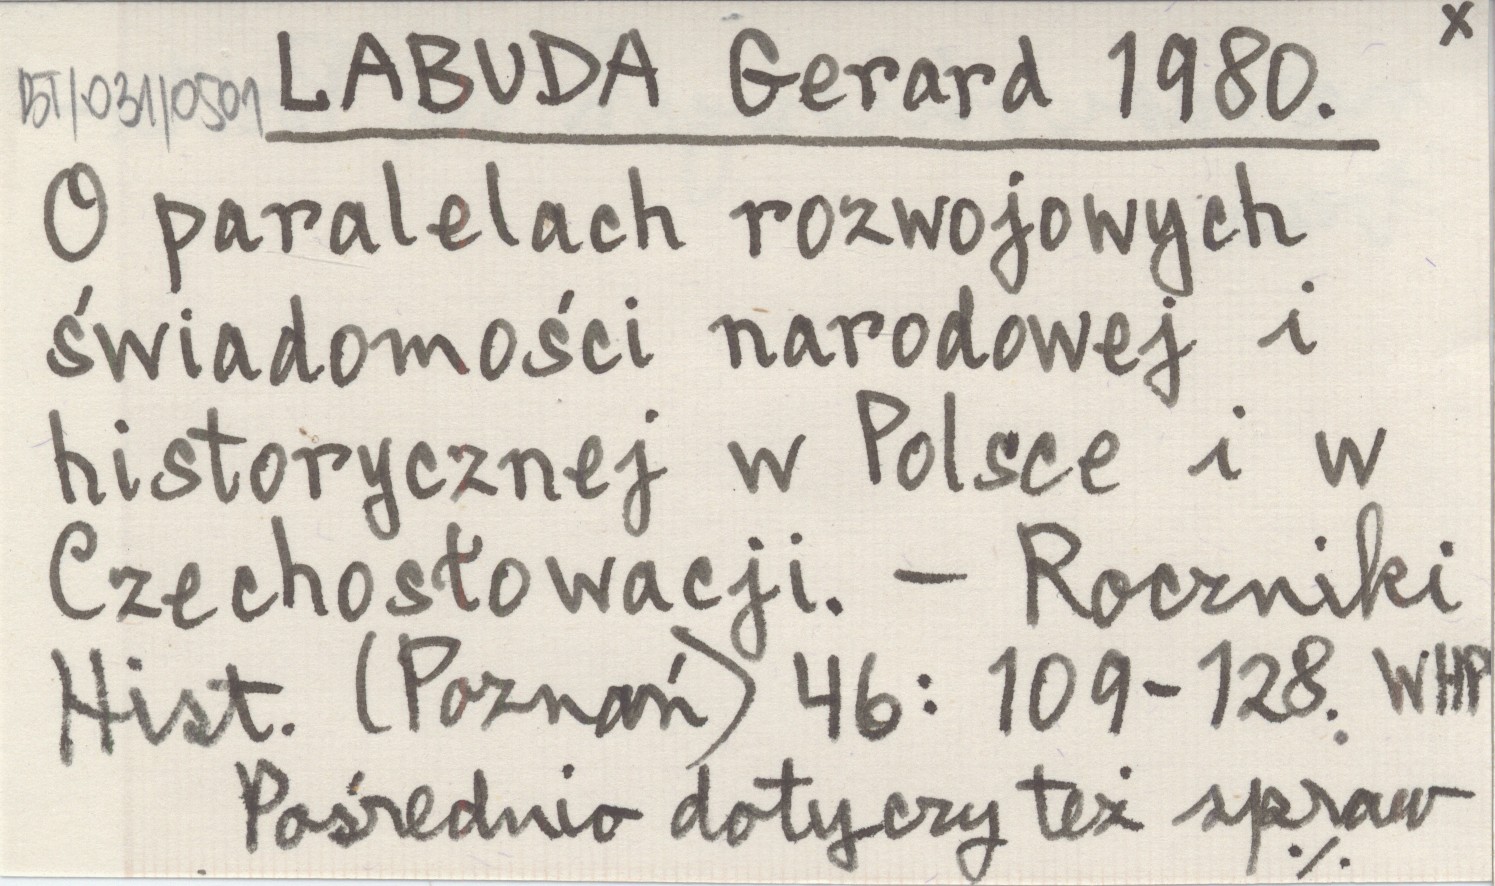 x
BT/031/0501 LABUDA Gerard 1980.
O paralelach rozwojowych
świadomości narodowej i
historycznej w Polsce i w
Czechosłowacji. – Roczniki
Hist. (Poznań) 46: 109-128. WHP
Pośrednio dotyczy też spraw
./.